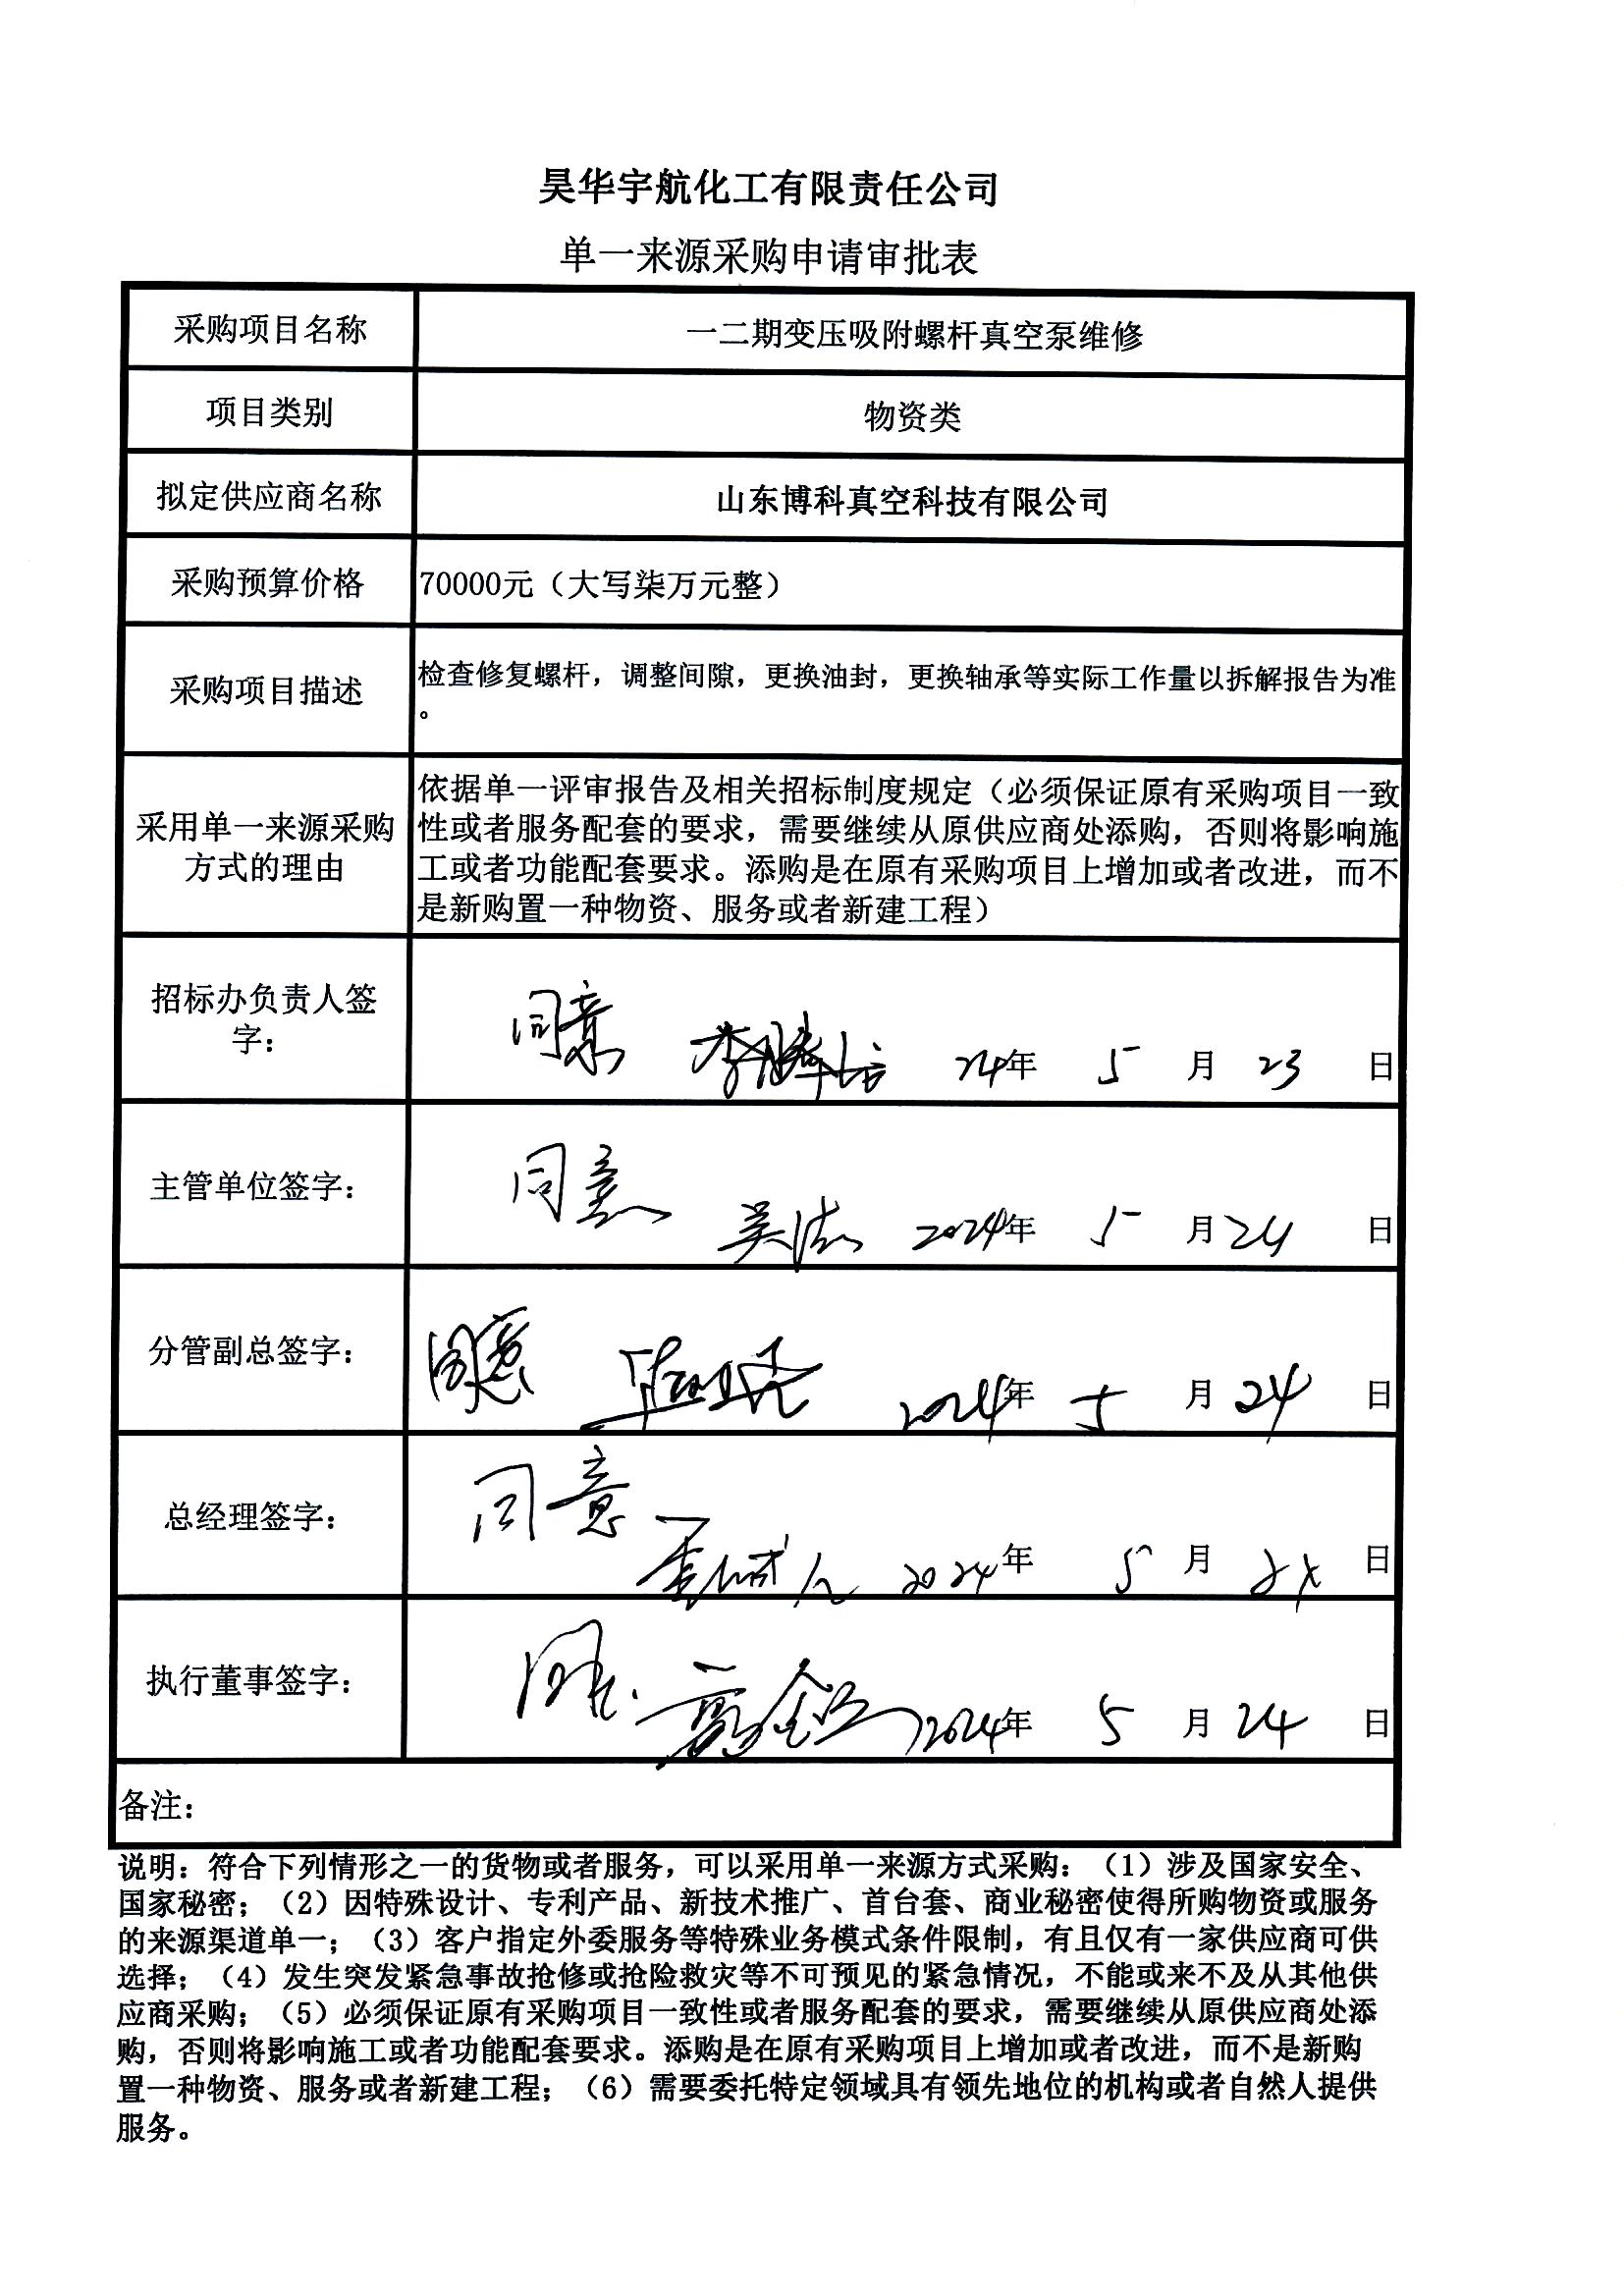 昊华宇航化工有限责任公司
单一来源采购申请审批表
采购项目名称
一二期变压吸附螺杆真空泵维修
项目类别
物资类
拟定供应商名称
山东博科真空科技有限公司
采购预算价格
70000元（大写柒万元整）
采购项目描述
检查修复螺杆，调整间隙，更换油封，更换轴承等实际工作量以拆解报告为准
。
采用单一来源采购
方式的理由
依据单一评审报告及相关招标制度规定（必须保证原有采购项目一致
性或者服务配套的要求，需要继续从原供应商处添购，否则将影响施
工或者功能配套要求。添购是在原有采购项目上增加或者改进，而不
是新购置一种物资、服务或者新建工程）
招标办负责人签
字：
同意
24年 5 月 23 日
主管单位签字：
同意
2024年 5 月 24 日
分管副总签字：
同意
2024年 5 月 24 日
总经理签字：
同意
2024年 5 月 24 日
执行董事签字：
同意
2024年 5 月 24 日
备注：
说明：符合下列情形之一的货物或者服务，可以采用单一来源方式采购：（1）涉及国家安全、
国家秘密；（2）因特殊设计、专利产品、新技术推广、首台套、商业秘密使得所购物资或服务
的来源渠道单一；（3）客户指定外委服务等特殊业务模式条件限制，有且仅有一家供应商可供
选择；（4）发生突发紧急事故抢修或抢险救灾等不可预见的紧急情况，不能或来不及从其他供
应商采购；（5）必须保证原有采购项目一致性或者服务配套的要求，需要继续从原供应商处添
购，否则将影响施工或者功能配套要求。添购是在原有采购项目上增加或者改进，而不是新购
置一种物资、服务或者新建工程；（6）需要委托特定领域具有领先地位的机构或者自然人提供
服务。